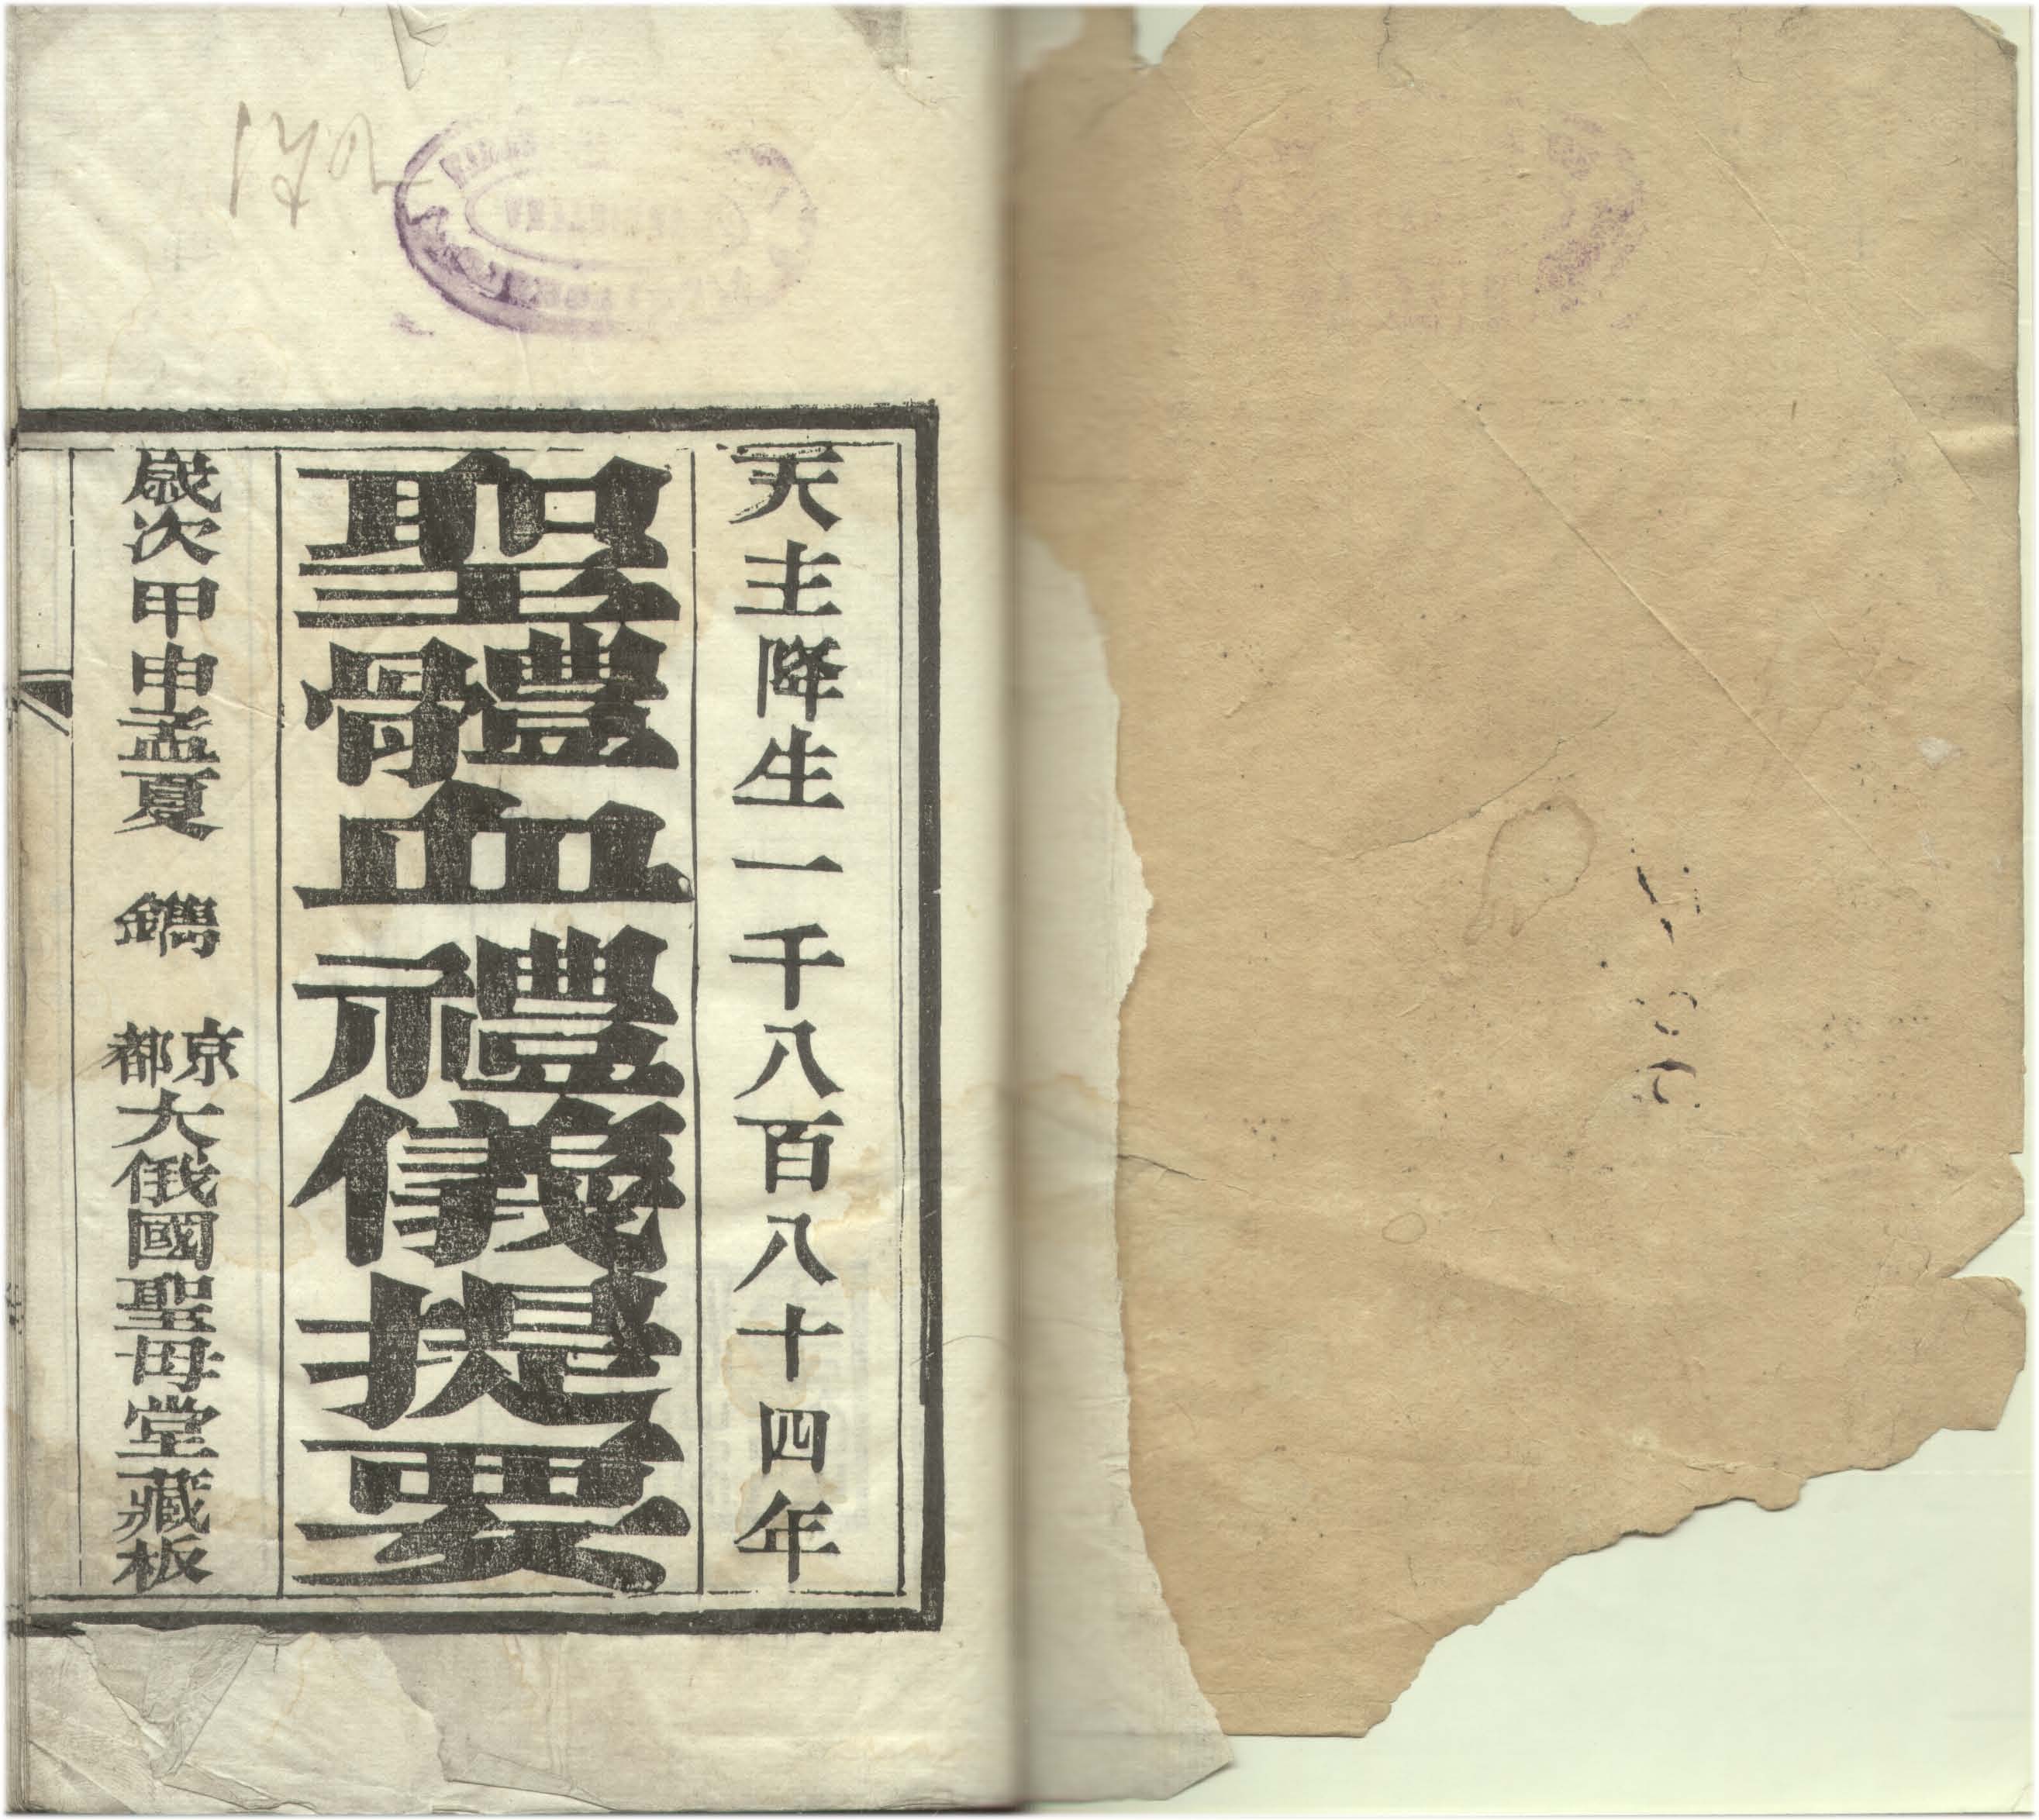 172
天主降生一千八百八十四年
聖體血禮儀提要
歲次甲申孟夏 鐫 京都大俄國聖母堂藏板